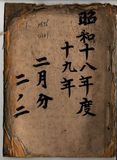 昭和十八年度
十九年
二月分
二ノ二